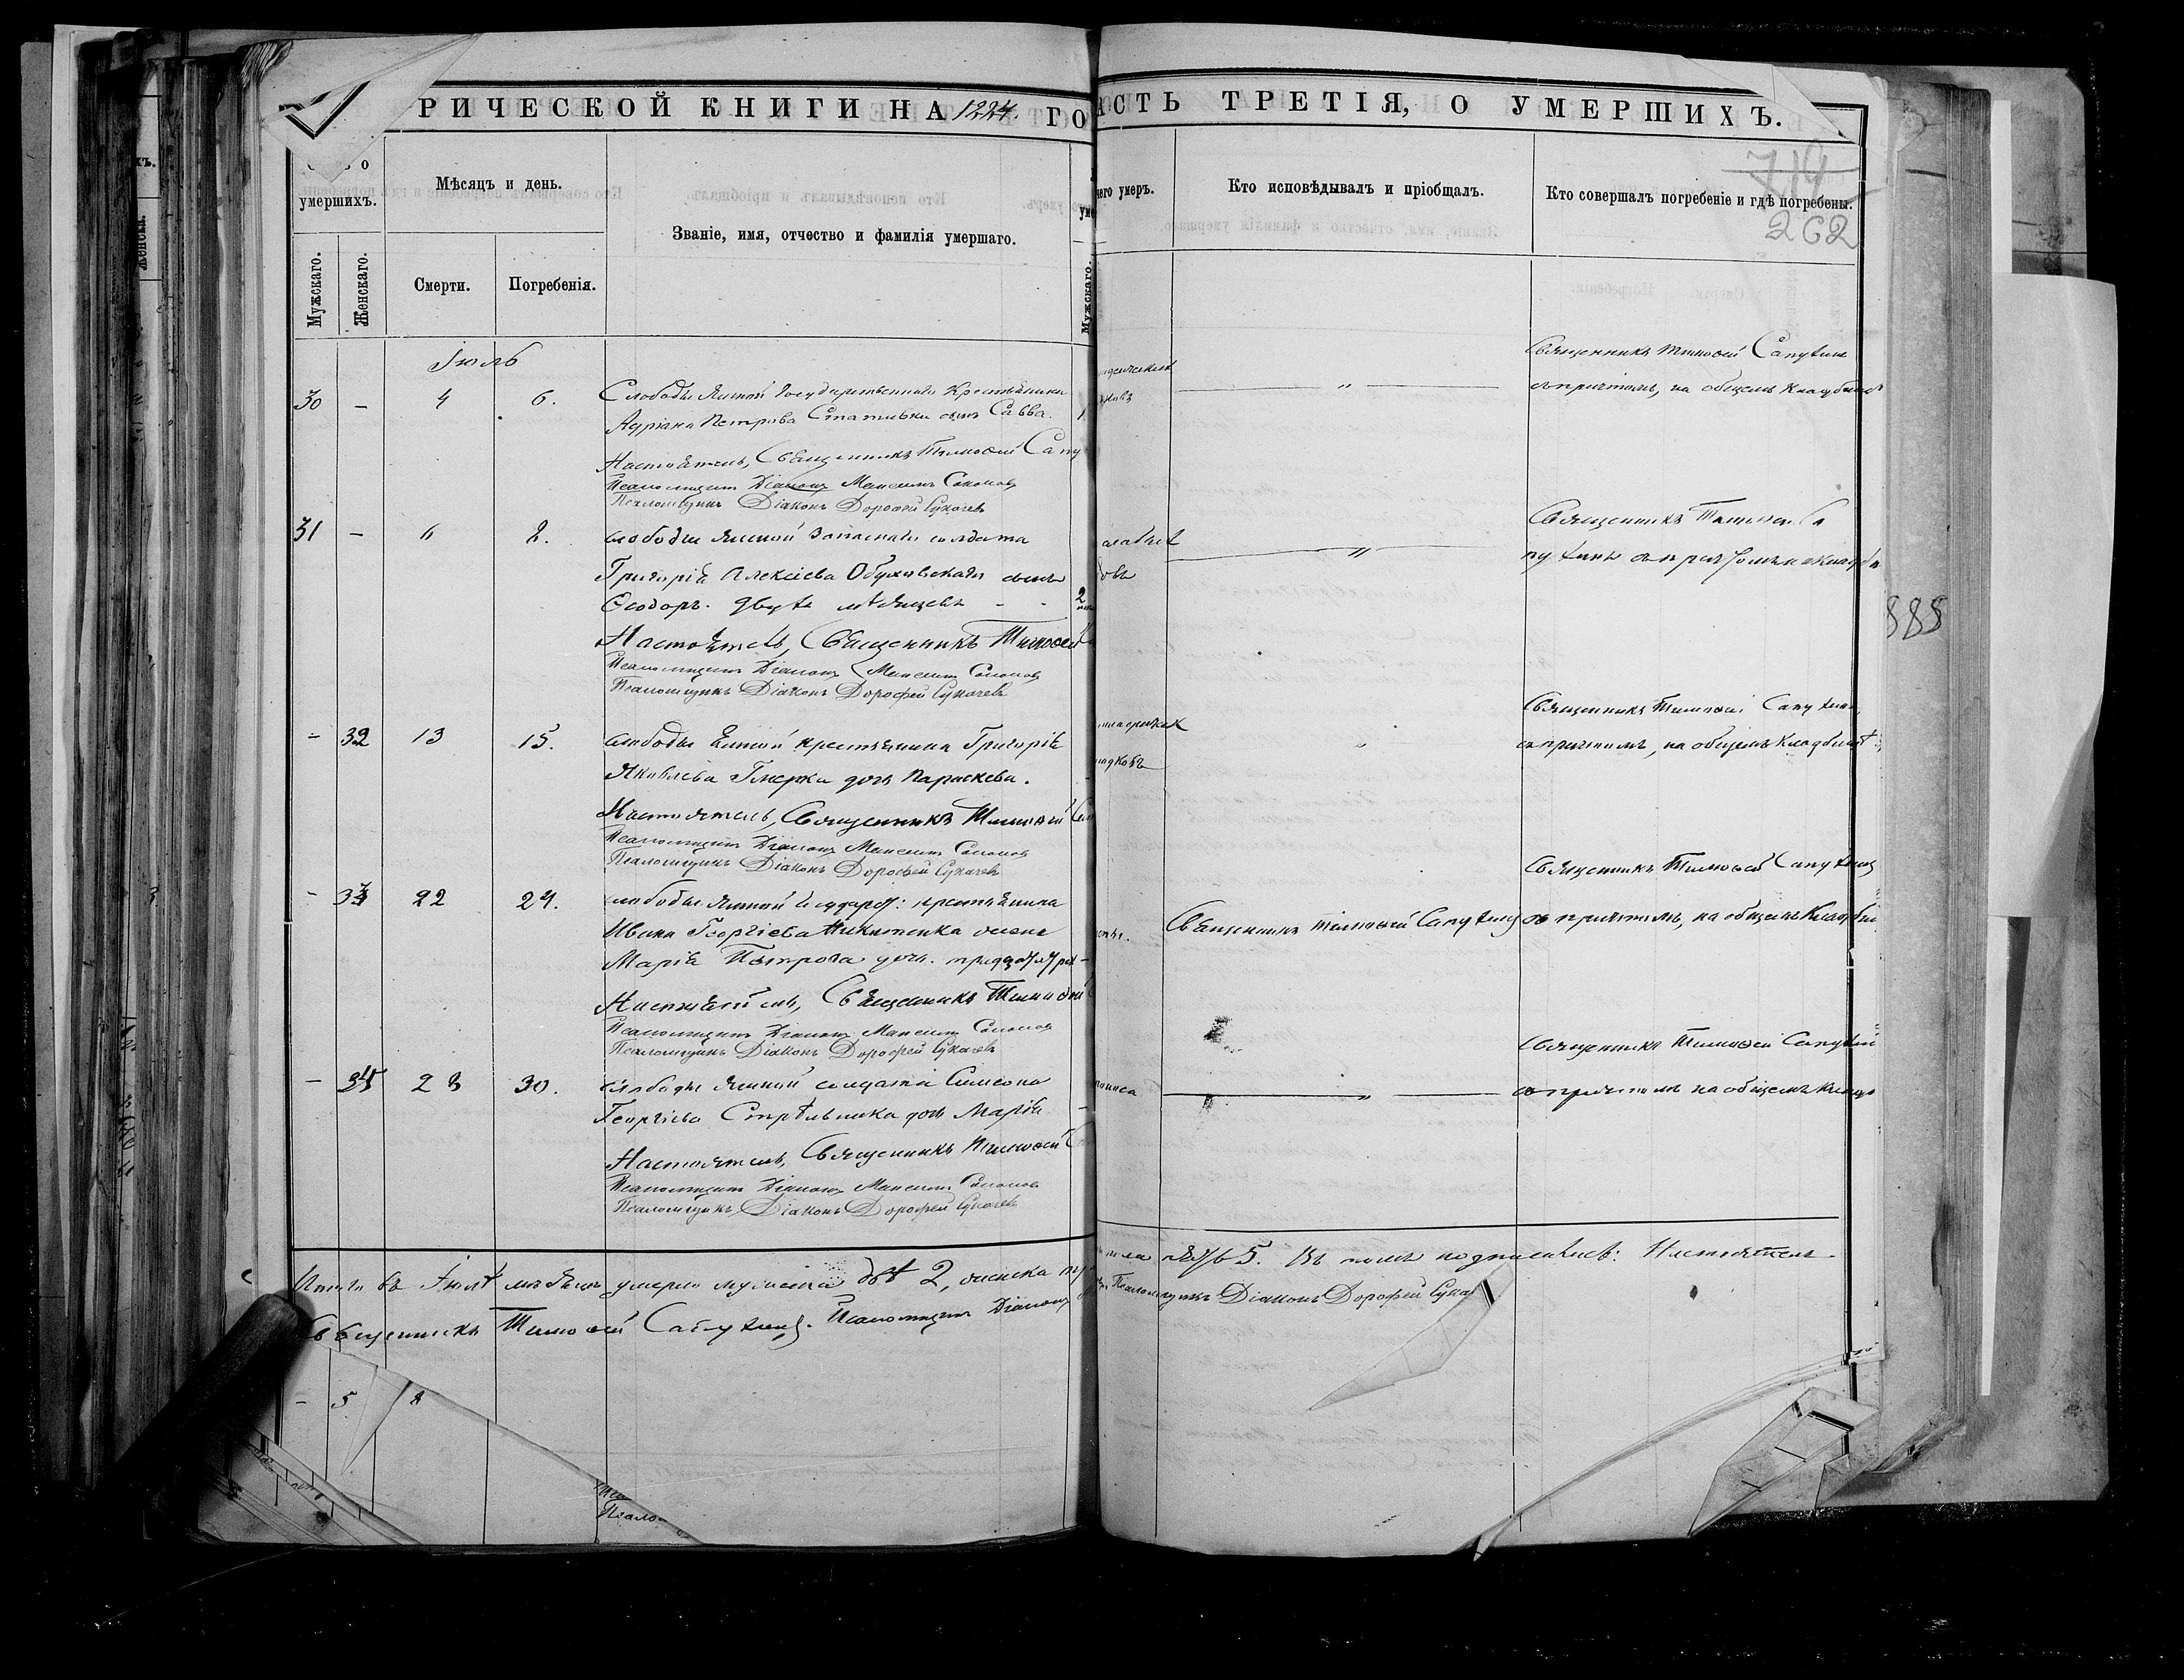 РИЧЕСКОЙ КНИГИ НА 1884. ГО
умершихъ.
Мѣсяцъ и день.
Званіе, имя, отчество и фамилія умершаго.
Мужскаго.
Женскаго.
Смерти.
Погребенія.
Мужскаго.
Іюль
30 – 4 6. Слободы Ямной Государственнаго Крестьянина
Адріана Петрова Стативки сынъ Савва. 1
Настоятель, Священникъ Тимоѳей Сапу
Псаломщикъ Діаконъ Максимъ
Псаломщикъ Діаконъ Дороѳей Сукачевъ
31 – 6 8. слободы Ямной запаснаго солдата
Григорія Алексіева Обуховскаго сынъ
Ѳеодоръ. двухъ мѣсяцевъ - - 2
Настоятель, Священникъ Тимоѳей
Псаломщикъ Діаконъ Максимъ
Псаломщикъ Діаконъ Дороѳей Сукачевъ
– 32 13 15. слободы Ямной крестьянина Григорія
Яковлева дочь Параскева.
Настоятель, Священникъ Тимоѳей
Псаломщикъ Діаконъ Максимъ
Псаломщикъ Діаконъ Дороѳей Сукачевъ
– 33 22 24. слободы Ямной Государ: крестьянина
Ивана Георгіева Никитенка жена
Марія Петрова
Настоятель, Священникъ Тимоѳей
Псаломщикъ Діаконъ Максимъ
Псаломщикъ Діаконъ Дороѳей Сукачевъ
– 34 28 30. слободы Ямной солдата Симеона
Георгіева Стрѣльника дочь Марія
Настоятель, Священникъ Тимоѳей
Псаломщикъ Діаконъ Максимъ
Псаломщикъ Діаконъ Дороѳей Сукачевъ
Итого въ Іюлѣ мѣсяцѣ умерло мужеска два 2, женска
Священникъ Тимоѳей Сапухинъ. Псаломщикъ Діаконъ
– 5 8
Псало
АСТЬ ТРЕТІЯ, О УМЕРШИХЪ.
714
262
чего умеръ.
Кто исповѣдывалъ и пріобщалъ.
Кто совершалъ погребеніе и гдѣ погребены.
Священникъ Тимоѳей Сапухинъ
съ причтомъ, на общемъ кладбищѣ
Священникъ Тимоѳей Са
пухинъ съ причтомъ
885
Священникъ Тимоѳей Сапухинъ,
съ причтомъ, на общемъ кладбищѣ
Священникъ Тимоѳей Сапухинъ
Священникъ Тимоѳей Сапухинъ съ причтомъ, на общемъ кладби
Священникъ Тимоѳей Сапухин
съ причтомъ на общемъ кладб
пола 5. Въ томъ подписались: Настоятель
Псаломщикъ Діаконъ Дороѳей Сука